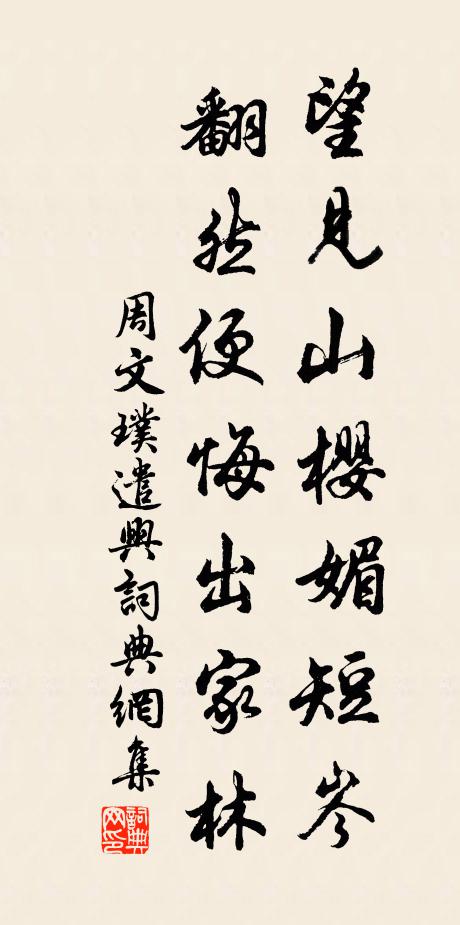 望見山櫻媚短岑
翻然便悔出家林
周文璞遣興詞典網集
詞典网印